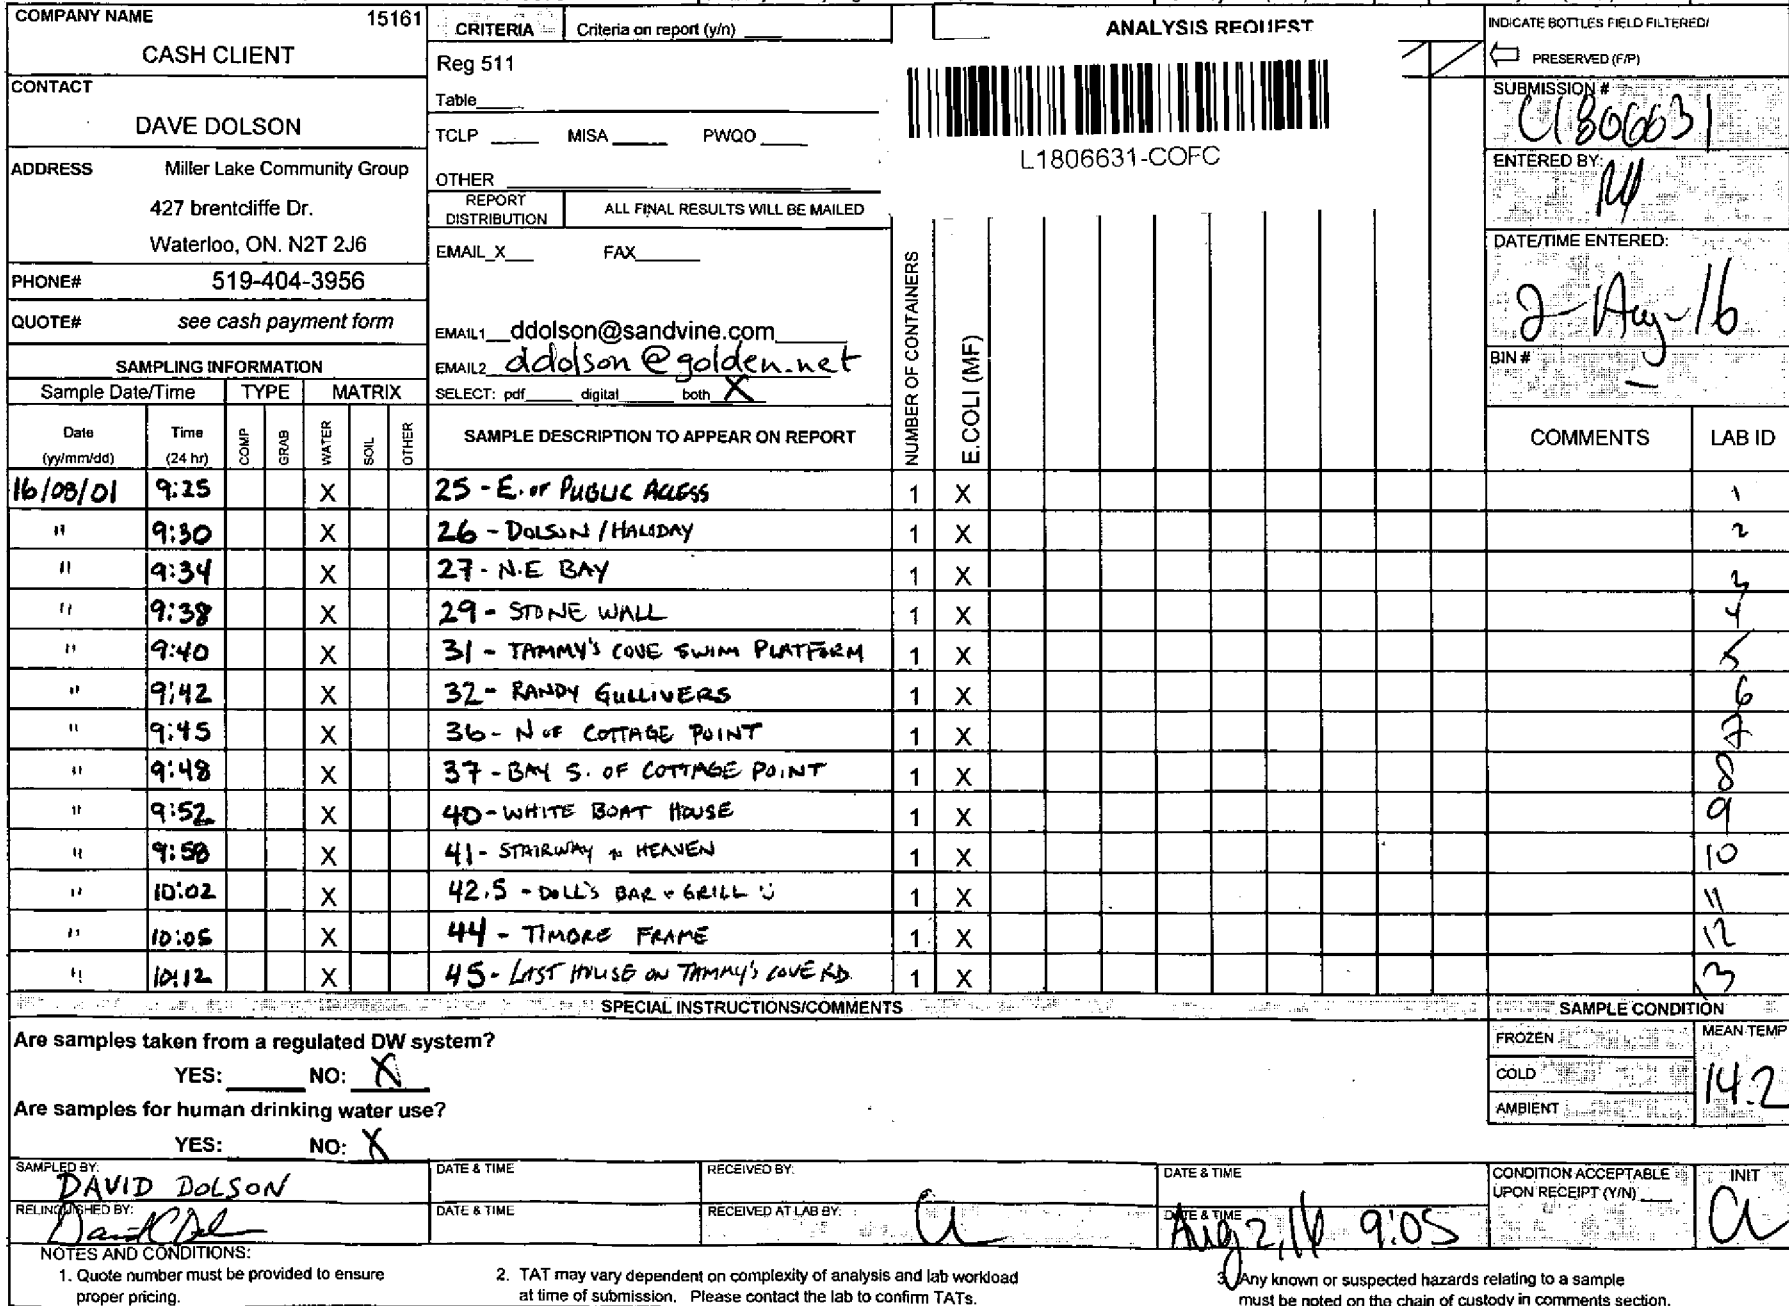 COMPANY NAME 15161
CASH CLIENT
CONTACT
DAVE DOLSON
ADDRESS Miller Lake Community Group
427 brentcliffe Dr.
Waterloo, ON. N2T 2J6
PHONE# 519-404-3956
QUOTE# see cash payment form
CRITERIA Criteria on report (y/n) ____
Reg 511
Table____
TCLP ____ MISA ____ PWQO ____
OTHER
REPORT DISTRIBUTION ALL FINAL RESULTS WILL BE MAILED
EMAIL_X__ FAX______
EMAIL1__ddolson@sandvine.com
EMAIL2 ddolson@golden.net
SELECT: pdf____ digital____ both X
ANALYSIS REQUEST
L1806631-COFC
INDICATE BOTTLES FIELD FILTERED/
PRESERVED (F/P)
SUBMISSION #
L1806631
ENTERED BY:
DATE/TIME ENTERED:
2-Aug-16
BIN #
SAMPLING INFORMATION
Sample Date/Time TYPE MATRIX
Date (yy/mm/dd) Time (24 hr) COMP GRAB WATER SOIL OTHER SAMPLE DESCRIPTION TO APPEAR ON REPORT NUMBER OF CONTAINERS E.COLI (MF) COMMENTS LAB ID
16/08/01 9:25 X 25 - E. OF PUBLIC ACCESS 1 X 1
" 9:30 X 26 - DOLSON / HALIDAY 1 X 2
" 9:34 X 27 - N.E BAY 1 X 3
" 9:38 X 29 - STONE WALL 1 X 4
" 9:40 X 31 - TAMMY'S COVE SWIM PLATFORM 1 X 5
" 9:42 X 32 - RANDY GULLIVERS 1 X 6
" 9:45 X 36 - N OF COTTAGE POINT 1 X 7
" 9:48 X 37 - BAY S. OF COTTAGE POINT 1 X 8
" 9:52 X 40 - WHITE BOAT HOUSE 1 X 9
" 9:58 X 41 - STAIRWAY to HEAVEN 1 X 10
" 10:02 X 42.5 - DOLL'S BAR + GRILL 1 X 11
" 10:05 X 44 - TIMBRE FRAME 1 X 12
" 10:12 X 45 - LAST HOUSE ON TAMMY'S COVE RD. 1 X 13
SPECIAL INSTRUCTIONS/COMMENTS SAMPLE CONDITION
Are samples taken from a regulated DW system?
YES: ____ NO: X
Are samples for human drinking water use?
YES: NO: X
FROZEN MEAN TEMP
COLD 14.2
AMBIENT
SAMPLED BY: DAVID DOLSON DATE & TIME RECEIVED BY: DATE & TIME
CONDITION ACCEPTABLE UPON RECEIPT (Y/N) ___ INIT
RELINQUISHED BY: DATE & TIME RECEIVED AT LAB BY: DATE & TIME Aug 2, 16 9:05
NOTES AND CONDITIONS:
1. Quote number must be provided to ensure proper pricing.
2. TAT may vary dependent on complexity of analysis and lab workload at time of submission. Please contact the lab to confirm TATs.
3. Any known or suspected hazards relating to a sample must be noted on the chain of custody in comments section.